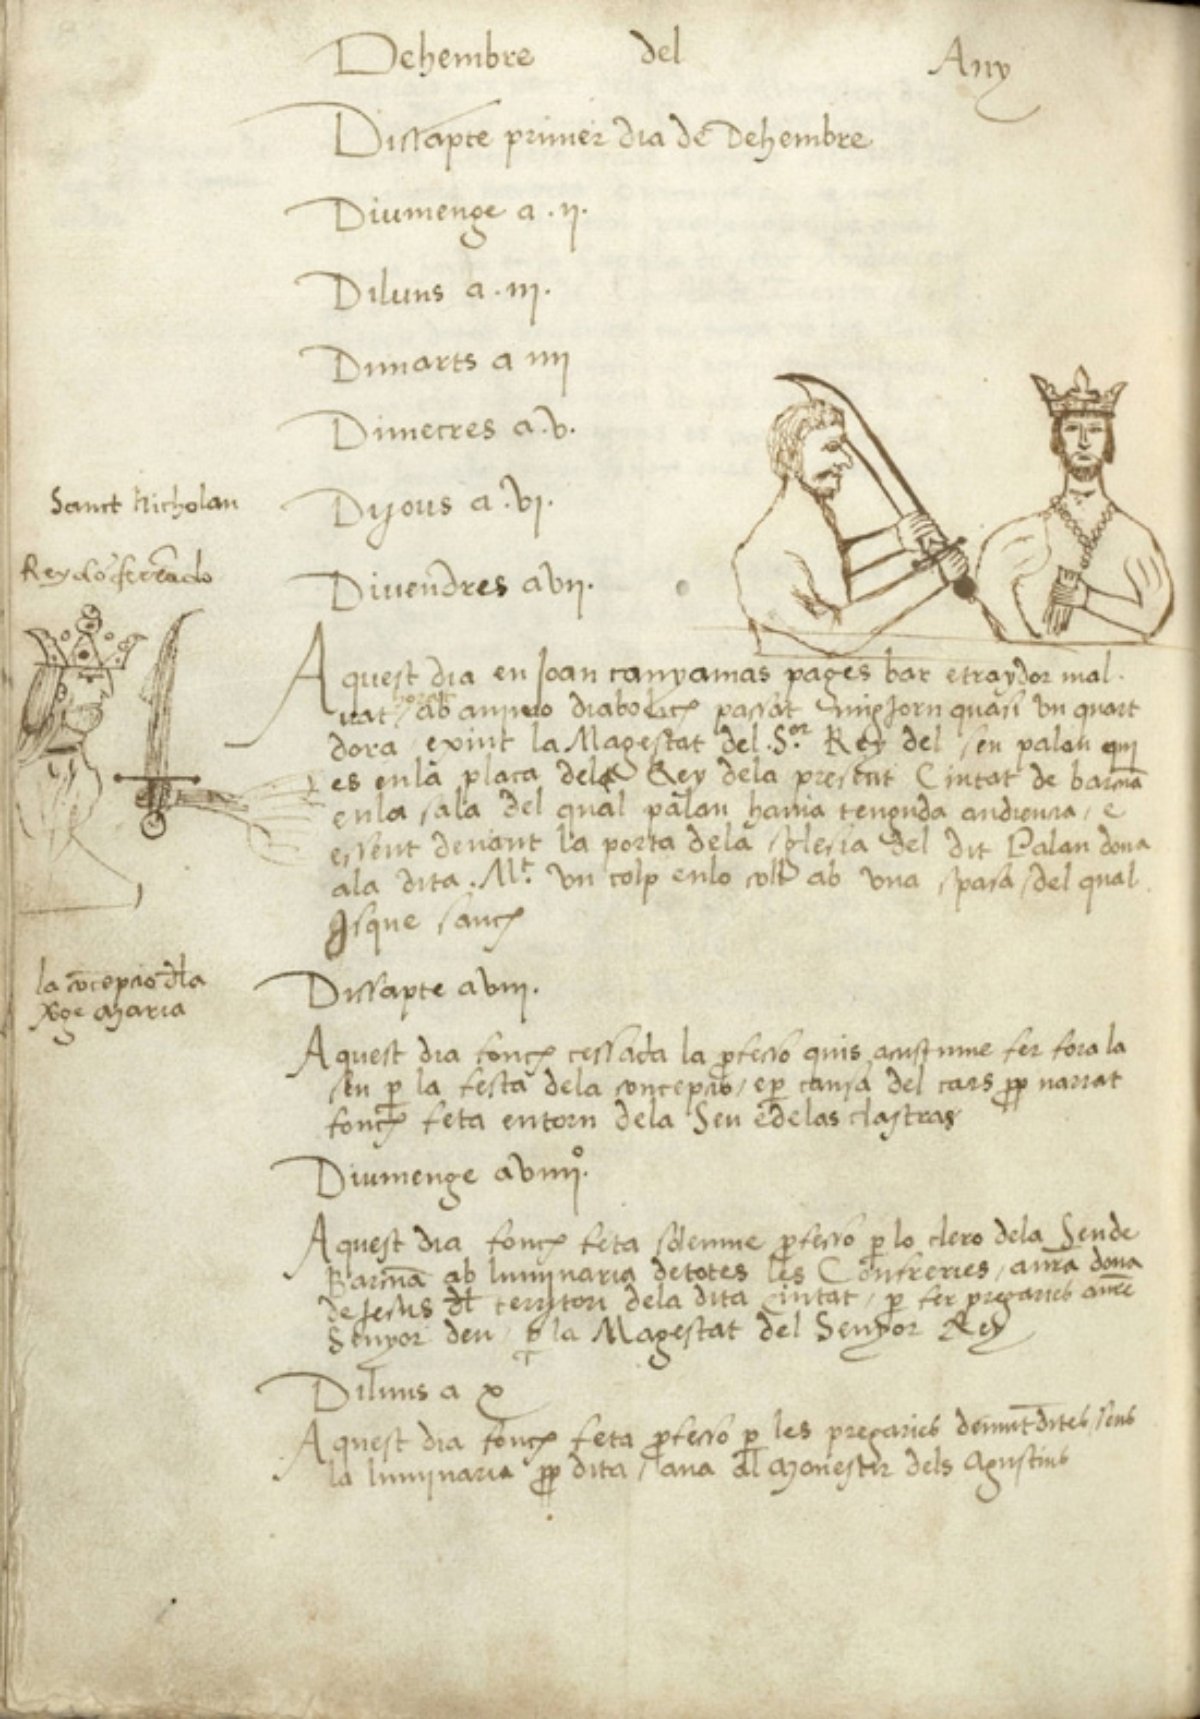 Dehembre del Any
Dissapte primer dia de Dehembre
Diumenge a .ij.
Diluns a .iij.
Dimarts a iiij
Dimecres a .v.
Sanct Nicholau
Dijous a .vj.
Rey do ferrando
Divendres a vij.
Aquest dia en Joan canyamas pages bar e traydor mal
vat ab animo diabolich passat mig jorn quasi vn quart
dora / exint la Magestat del .S.or Rey del seu palau qui
es en la plaça del Rey dela present Ciutat de barna
en la sala del qual palau havia tenguda audiencia / e
essent devant la porta dela sglesia del dit Palau dona
ala dita .Mt. vn colp en lo coll ab vna spasa / del qual
isque sanch
la concepcio dla
vge maria
Dissapte a viij.
Aquest dia fonch cessada la pfesso quis acustume fer fora la
seu p la festa dela concepcio / e p causa del cars pp narrat
fonch feta entorn dela Seu e delas clastras
Diumenge a viiijº.
Aquest dia fonch feta solemne pfesso p lo clero dela Seu de
Barna ab luminaria de totes les Confreries / a nra dona
de Jesus dl territori dela dita Ciutat / p fer pregaries
Senyor deu / p la Magestat del Senyor Rey
Diluns a x
Aquest dia fonch feta pfesso p les pregaries demuntdites / sens
la luminaria pp dita / ana al monestir dels Agustins